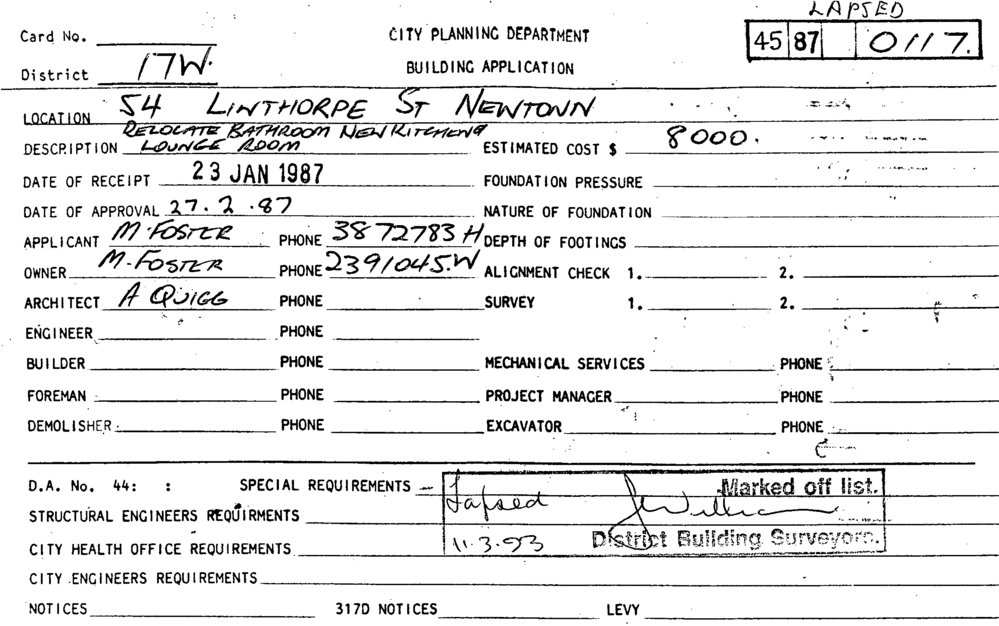 LAPSED
Card No. CITY PLANNING DEPARTMENT 45 87 0117.
District 17W. BUILDING APPLICATION
LOCATION 54 LINTHORPE ST NEWTOWN
RELOCATE BATHROOM NEW KITCHEN &
DESCRIPTION LOUNGE ROOM ESTIMATED COST $ 8000.
DATE OF RECEIPT 23 JAN 1987 FOUNDATION PRESSURE
DATE OF APPROVAL 27.2.87 NATURE OF FOUNDATION
APPLICANT M. FOSTER PHONE 3872783 H DEPTH OF FOOTINGS
OWNER M. FOSTER PHONE 2391045.W ALIGNMENT CHECK 1. 2.
ARCHITECT A QUIGG PHONE SURVEY 1. 2.
ENGINEER PHONE
BUILDER PHONE MECHANICAL SERVICES PHONE
FOREMAN PHONE PROJECT MANAGER PHONE
DEMOLISHER PHONE EXCAVATOR PHONE
D.A. No. 44: : SPECIAL REQUIREMENTS Marked off list.
STRUCTURAL ENGINEERS REQUIRMENTS Lapsed
CITY HEALTH OFFICE REQUIREMENTS 11.3.93 District Building Surveyors.
CITY ENGINEERS REQUIREMENTS
NOTICES 317D NOTICES LEVY